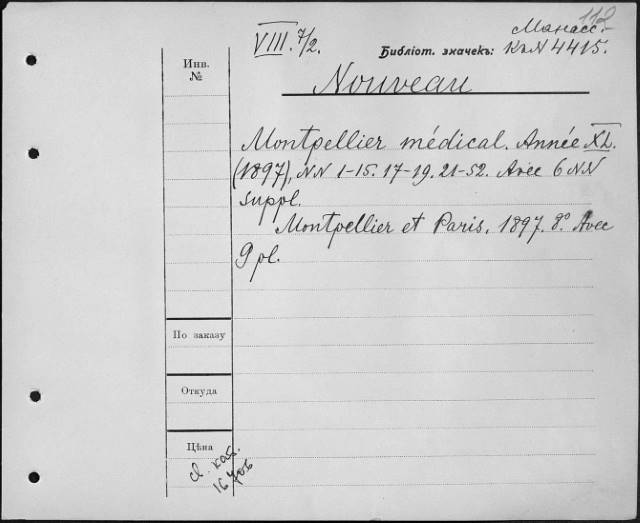 112
VIII. 7/2.
Манасс.
Библіот. значекъ: КкN 4415.
Инв.
№
Nouveau
Montpellier médical. Année XL.
(1897), NN 1-15. 17-19. 21-52. Avec 6 NN
suppl.
Montpellier et Paris, 1897. 8° Avec
9 pl.
По заказу
Откуда
Цѣна